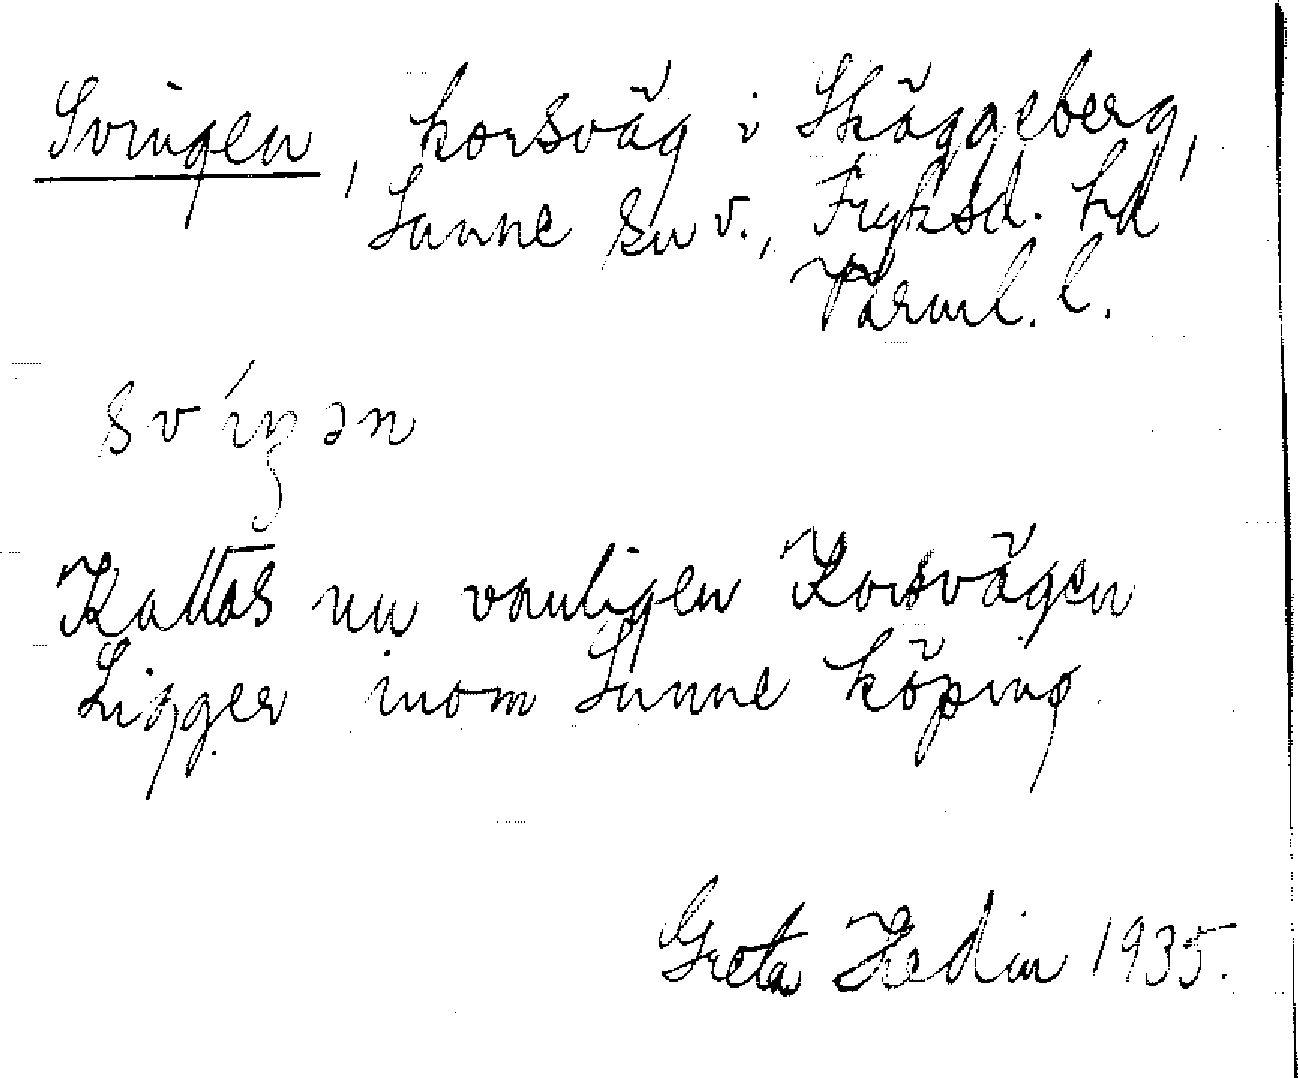 Svingen, korsväg i Skäggeberg,
Sunne sn v., Fryksd. hd
Värml. l.
svíŋən
Kallas nu vanligen Korsvägen
Ligger inom Sunne köping
Greta Hedin 1935.